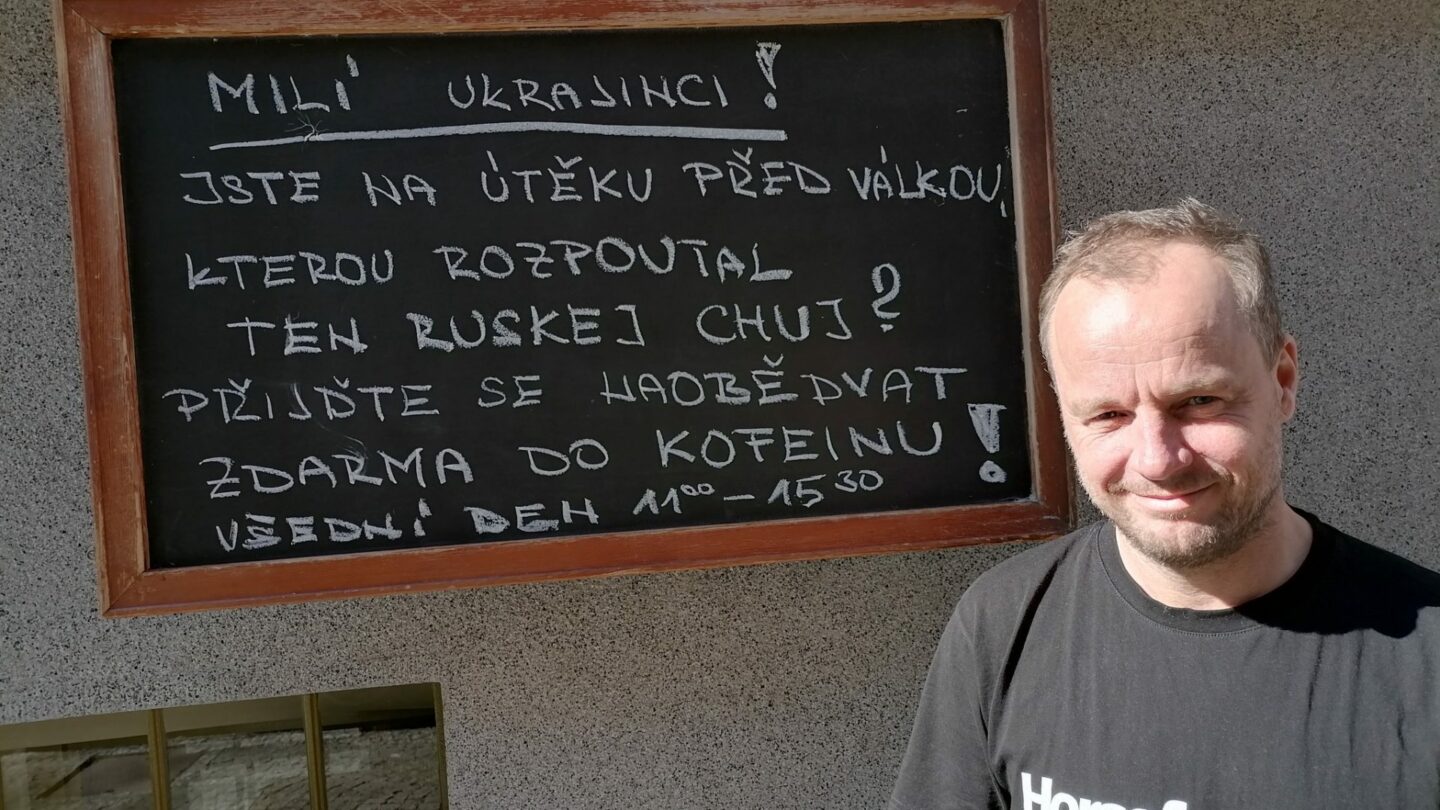 MILÍ UKRAJINCI!
JSTE NA ÚTĚKU PŘED VÁLKOU,
KTEROU ROZPOUTAL
TEN RUSKEJ CHUJ?
PŘIJĎTE SE NAOBĚDVAT
ZDARMA DO KOFEINU!
VŠEDNÍ DEN 11⁰⁰ – 15³⁰